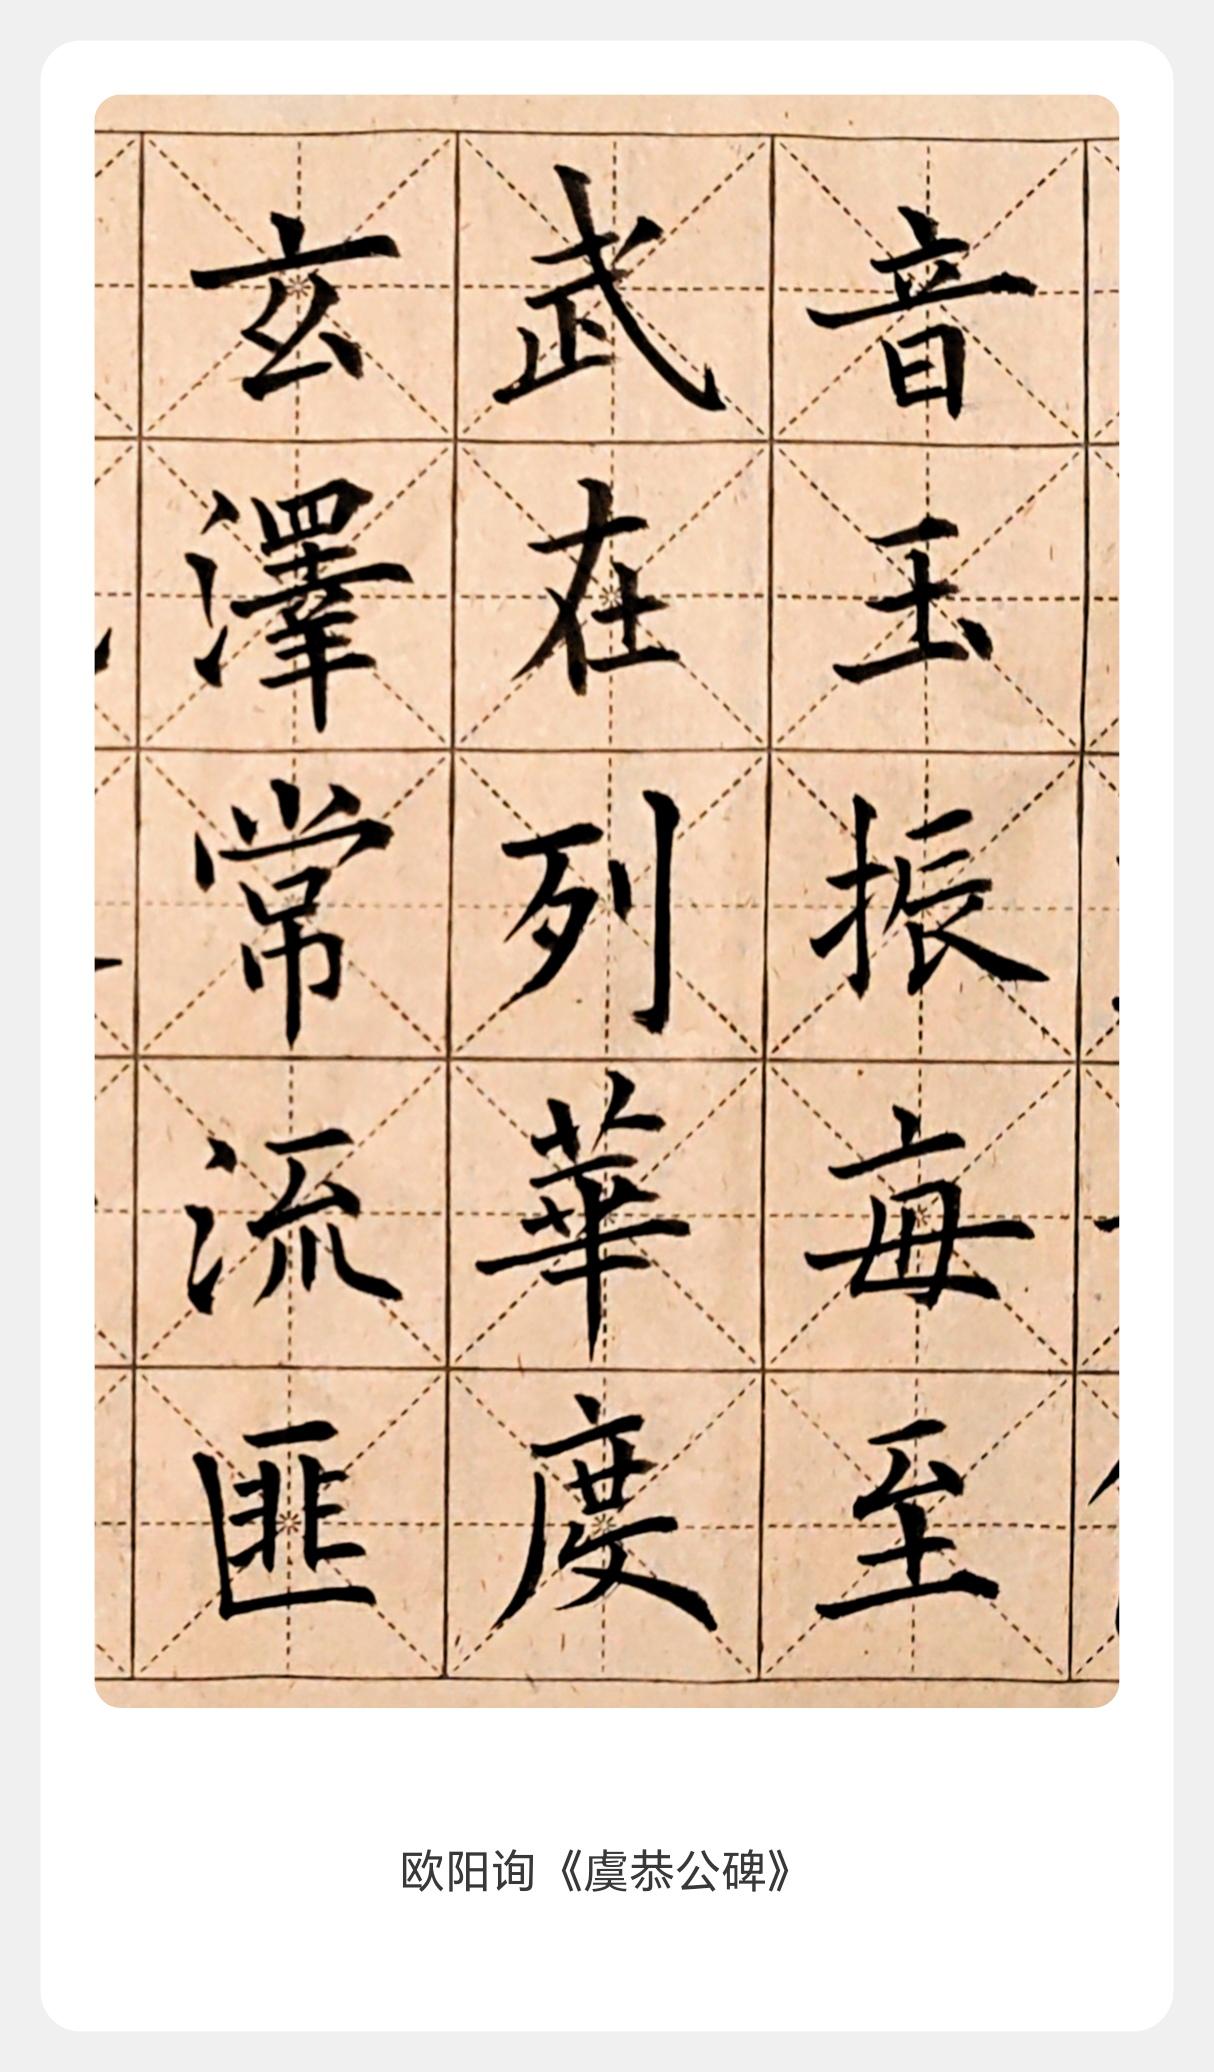 音玉振每至
武在列華度
玄澤常流匪
欧阳询《虞恭公碑》